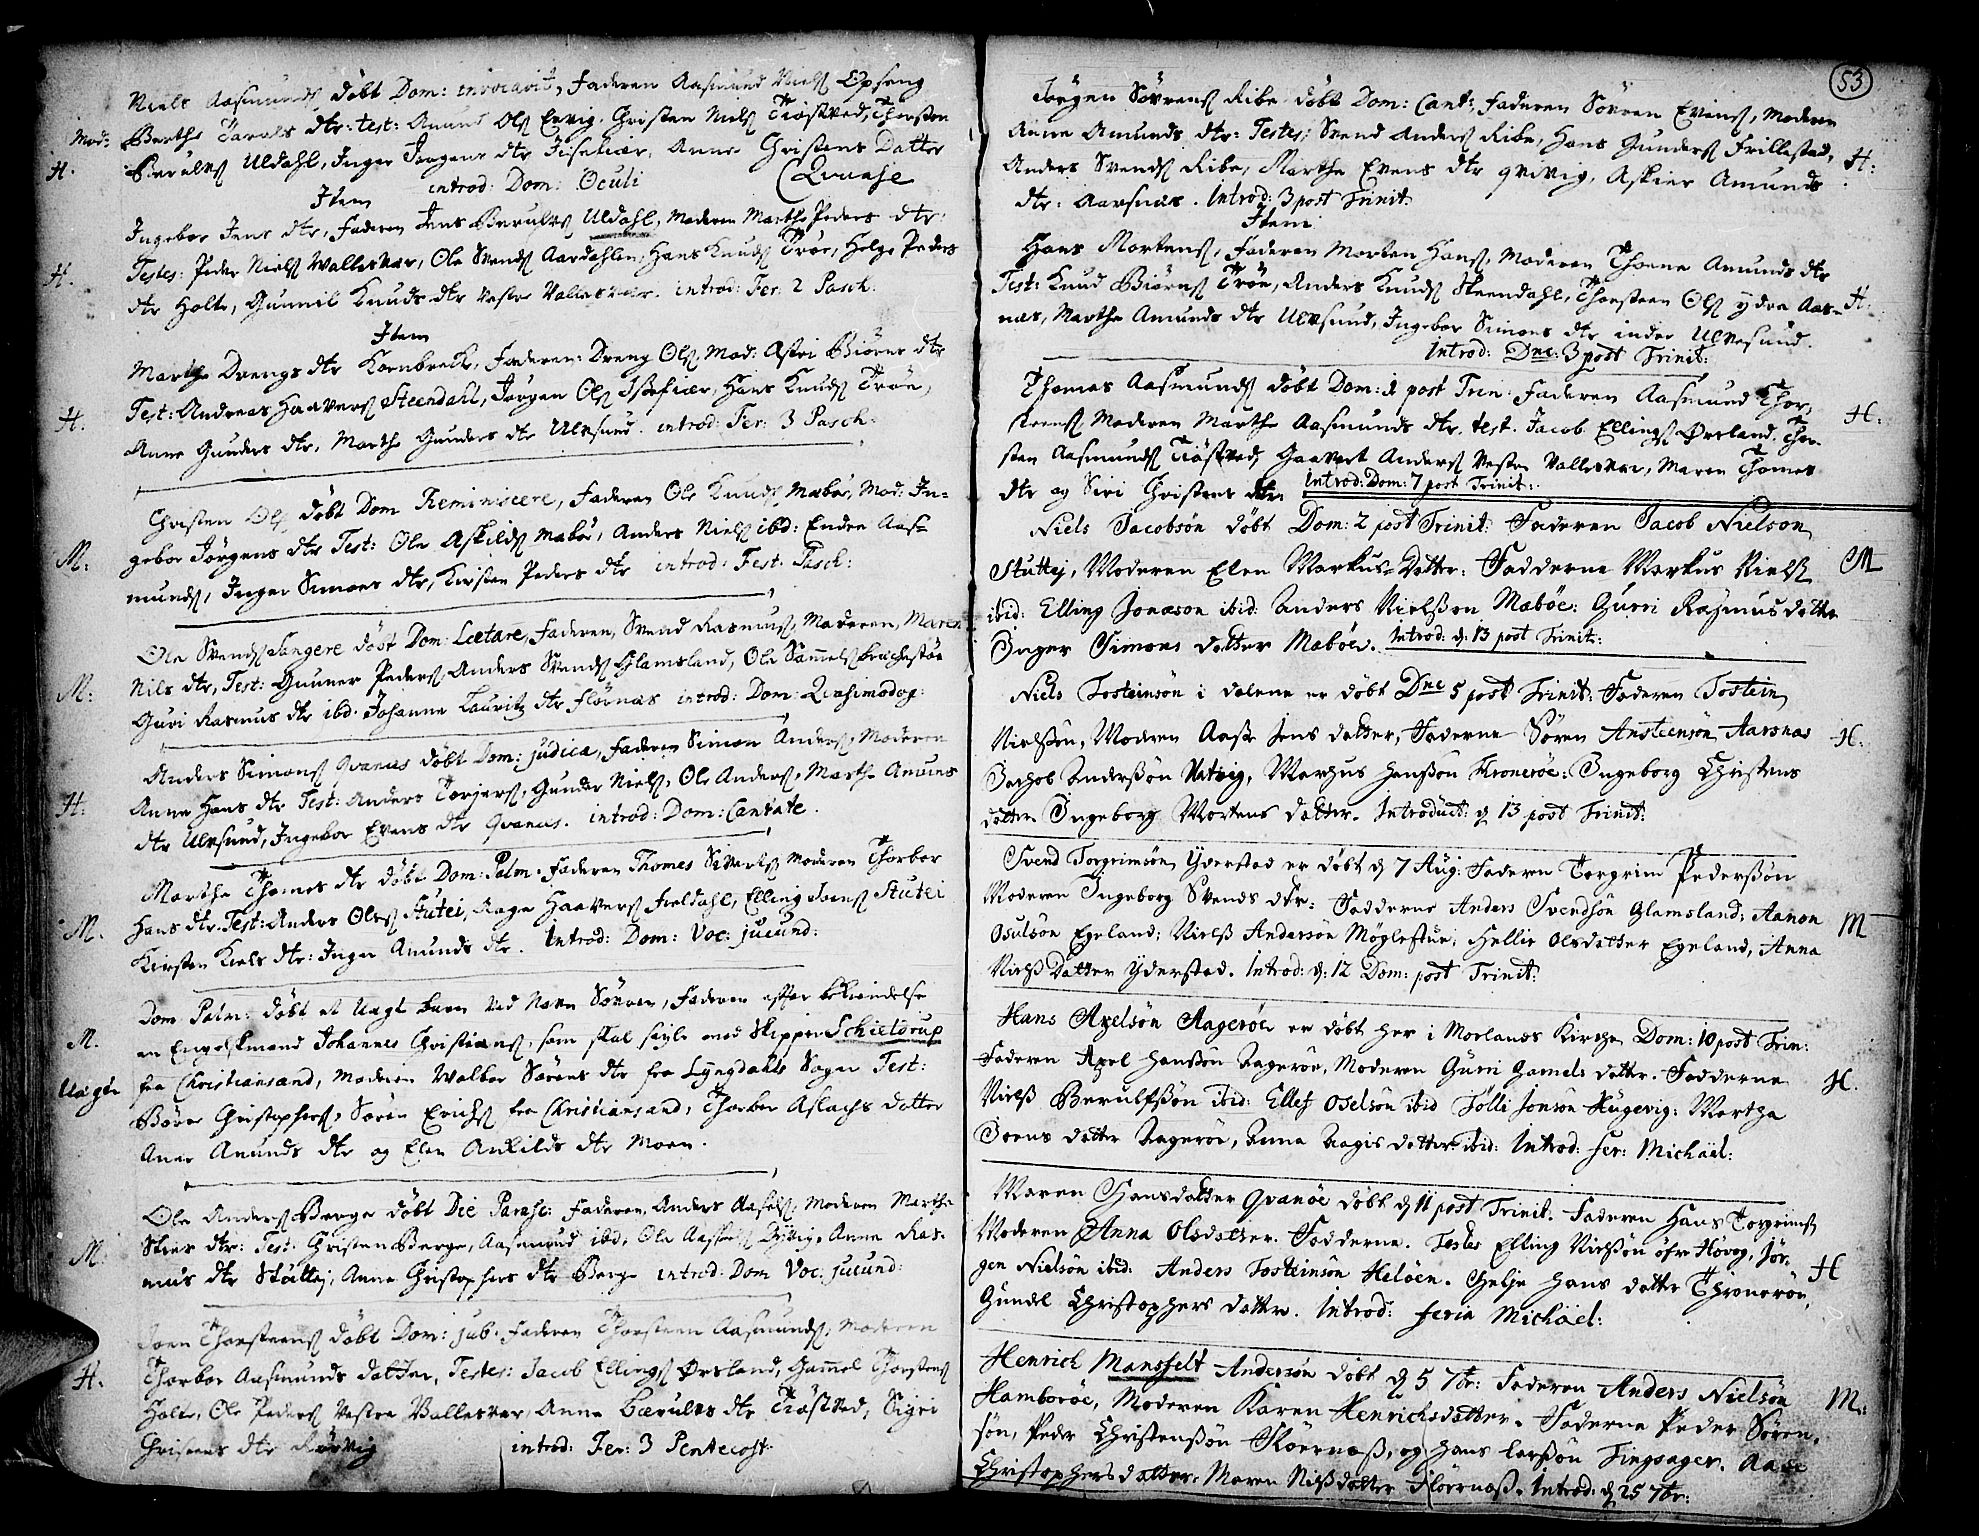 Niels Aasmunds döbt Dom: invocavit, Faderen Aasmund Niels Opseng
Mod: Berthe Tarals dtr: test: Amund Ols Eevig, Christen Niels Tröstved, Thorsten
H. Berulvs Uldahl, Inger Jörgens dtr Jisekier, Anne Christens Datter
introd: Dom: Oculi (Qvaase
Item
Ingebor Jens dtr, Faderen Jens Berulvs Uldahl, Moderen Marthe Peders dtr:
H. Testes: Peder Niels Vallesvær, Ole Svends Aardahlen, Hans Knuds Tröe, Helge Peders
dtr Holte, Gunnil Knuds dtr Vestre Vallesvær. introd: Fer: 2 Pasch:
Item
Marthe Drengs dtr Kornbreck, Faderen: Dreng Ols, Mod: Astri Biörns dtr
H. Test: Andreas Haavers Steendahl, Jörgen Ols Isefiær, Hans Knuds Tröe,
Anne Gunders dtr, Marthe Gunders dtr Ulvsund. introd: Fer: 3 Pasch:
Christen Ols döbt Dom Reminiscere, Faderen Ole Knuds Mæböe, Mod: In-
M. gebor Jörgens dtr Test: Ole Askilds Mæböe, Anders Niels ibd: Endre Aas-
munds, Inger Simons dtr, Kirsten Peders dtr introd: Fest: Pasch:
Ole Svends Sangere döbt Dom: Lætare, Faderen, Svend Rasmus, Moderen, Maren
M: Nils dtr, Test: Gunner Peders, Anders Svends Glamsland, Ole Samuels
Guri Rasmus dtr ibd. Johanne Lauritz dtr Flörnæs introd: Dom: Qvasimodog:
Anders Simons Qvanæs döbt Dom: judica, Faderen Simon Anders, Moderen
H: Anne Hans dtr Test: Anders Torjers, Gunder Niels, Ole Anders, Marthe Amuns
dtr Ulvsund, Ingebor Evens dtr Qvanæs. introd: Dom: Cantate.
Marthe Thomes dtr döbt Dom: Palm. Faderen Thomes Siverts Moderen Thorbor
M. Hans dtr. Test: Anders Ols Stutei, Aage Haavers Fieldahl, Elling Joens Stutei
Kirsten Niels dtr: Inger Amunds dtr. Introd: Dom: Voc: jucund:
Dom Palm: döbt et Uægt barn ved navn Sörren, Faderen efter bekiendelse
M. en Engelskmand Johannes Christians, som skal seyle med Skipper Schieldrup
Uægte fra Christiansand, Moderen Valbor Sörens dtr fra Lyngdahls Sogn Test:
Börre Christophers, Sören Erichs fra Christiansand, Thorbor Aslachs datter
Anne Amunds dtr og Elen Ankilds dtr Moen.
Ole Anders Berge döbt Die Parasc: Faderen, Anders Aasels, Moderen Marthe
M. Stens dtr: Test: Christen Berge, Aasmund ibd, Ole Anne Ras-
mus dtr Stuttej, Anne Christophers dtr Berge introd: Dom Voc: jucund:
Joen Thorsteens döbt Dom: jub. Faderen Thorsteen Aasmunds, Moderen
H. Thorbor Aasmunds datter, Testes: Jacob Ellings Örsland, Gamel Thorstens
Holte, Ole Peders Vestre Vallesvær, Anne Berulvs dtr Tröstved, Sigri
Christens dtr Rörvig introd: Fer: 3 Pentecost:
53
Jörgen Sörrens Ribe döbt Dom: Cant: Faderen Sörren Evens, Moderen
Anne Amunds dtr: Testes: Svend Anders Ribe, Hans Gunders Frillestad,
Anders Svends Ribe, Marthe Evens dtr qvivig, Askier Amunds H:
dtr: Aarsnæs. Introd: 3 post Trinit:
Item
Hans Mortens, Faderen Morten Hans, Moderen Thorne Amunds dtr
Test: Knud Biörns Tröe, Anders Knuds Steendahl, Thorsteen Ols ydre Aas- H.
næs, Marthe Amunds dtr Ulvsund, Ingebor Simons dtr indre Ulvesund.
Introd: Dne: 3 post Trinit:
Thomas Aasmunds döbt Dom: 1 post Trin: Faderen Aasmund Thor-
steens Moderen Marthe Aasmunds dtr. test. Jacob Ellings Örsland. Thor- H:
sten Aasmunds Tröstved, Gaavert Anders Vestre Vallesvær, Maren Thomes
dtr og Siri Christens dtr. Introd: Dom: 7 post Trinit:
Niels Jacobsön döbt Dom: 2 post Trinit: Faderen Jacob Nielson
Stuttej, Moderen Elen Markus-Datter: Fadderne Markus Niels M
ibid: Elling Jonæson ibid: Anders Nielsson Mæböe: Gurri Rasmusdatter
Inger Simons datter Mæböe. Introd: d: 13 post Trinit:
Niels Tosteinsön i dalene er döbt Dne 5 post Trinit: Faderen Tostein
Nielssön, Moderen Aase Jens datter, Faderne Sören Ansteensön Aarsnæs H.
Jachob Anderssön Natvig, Marchus Hanssön Kroneröe: Ingeborg Christens
datter Ingeborg Mortens datter. Introduct: d 13 post Trinit:
Svend Torgrimsön Yderstad er döbt d 7 Aug: Faderen Torgrim Pederssön
Moderen Ingeborg Svends dtr: Fadderne Anders Svendsön Glamsland; Aanon M
Osulsön Egeland; Nielss Andersön Möglestue, Hellie Olsdatter Egeland, Anna
Nielss Datter Yderstad. Introd: d: 12 Dom: post Trinit:
Hans Axelsön Aageröe er döbt her i Morlands Kirche Dom: 10 post Trin:
Faderen Axel Hanssön Aageröe, Moderen Gurri Gamels datter. Fadderne H.
Nielss Berulfssön ibid: Ellef Oselsön ibid Tölli Jonsön Hugevig: Martha
Joens datter Aageröe, Anna Aagis datter ibid: Introd: fer: Michäel:
Maren Hansdatter Qvanöe döbt d 11 post Trinit. Faderen Hans Torgrims
Moderen Anna Olsdatter. Fadderne. Testes Elling Nielssön öfre Hövog, Jör-
gen Nielsön ibid: Anders Tosteinsön Helöen. Helje Hans datter Throneröe, H
Gundel Christophers datter. Introd: feria Michäel:
Henrich Mansfelt Andersön döbt d 5 7br: Faderen Anders Nielsön
Hamboröe, Moderen Karen Henrichsdatter. Faderne Peder Sören- M:
sön, Peder Christenssön Flöernæss, og Hans Larssön Tingsager. Aase
Christophersdatter. Maren Nilssdatter Flöernæss. Introd: d 25 7br: